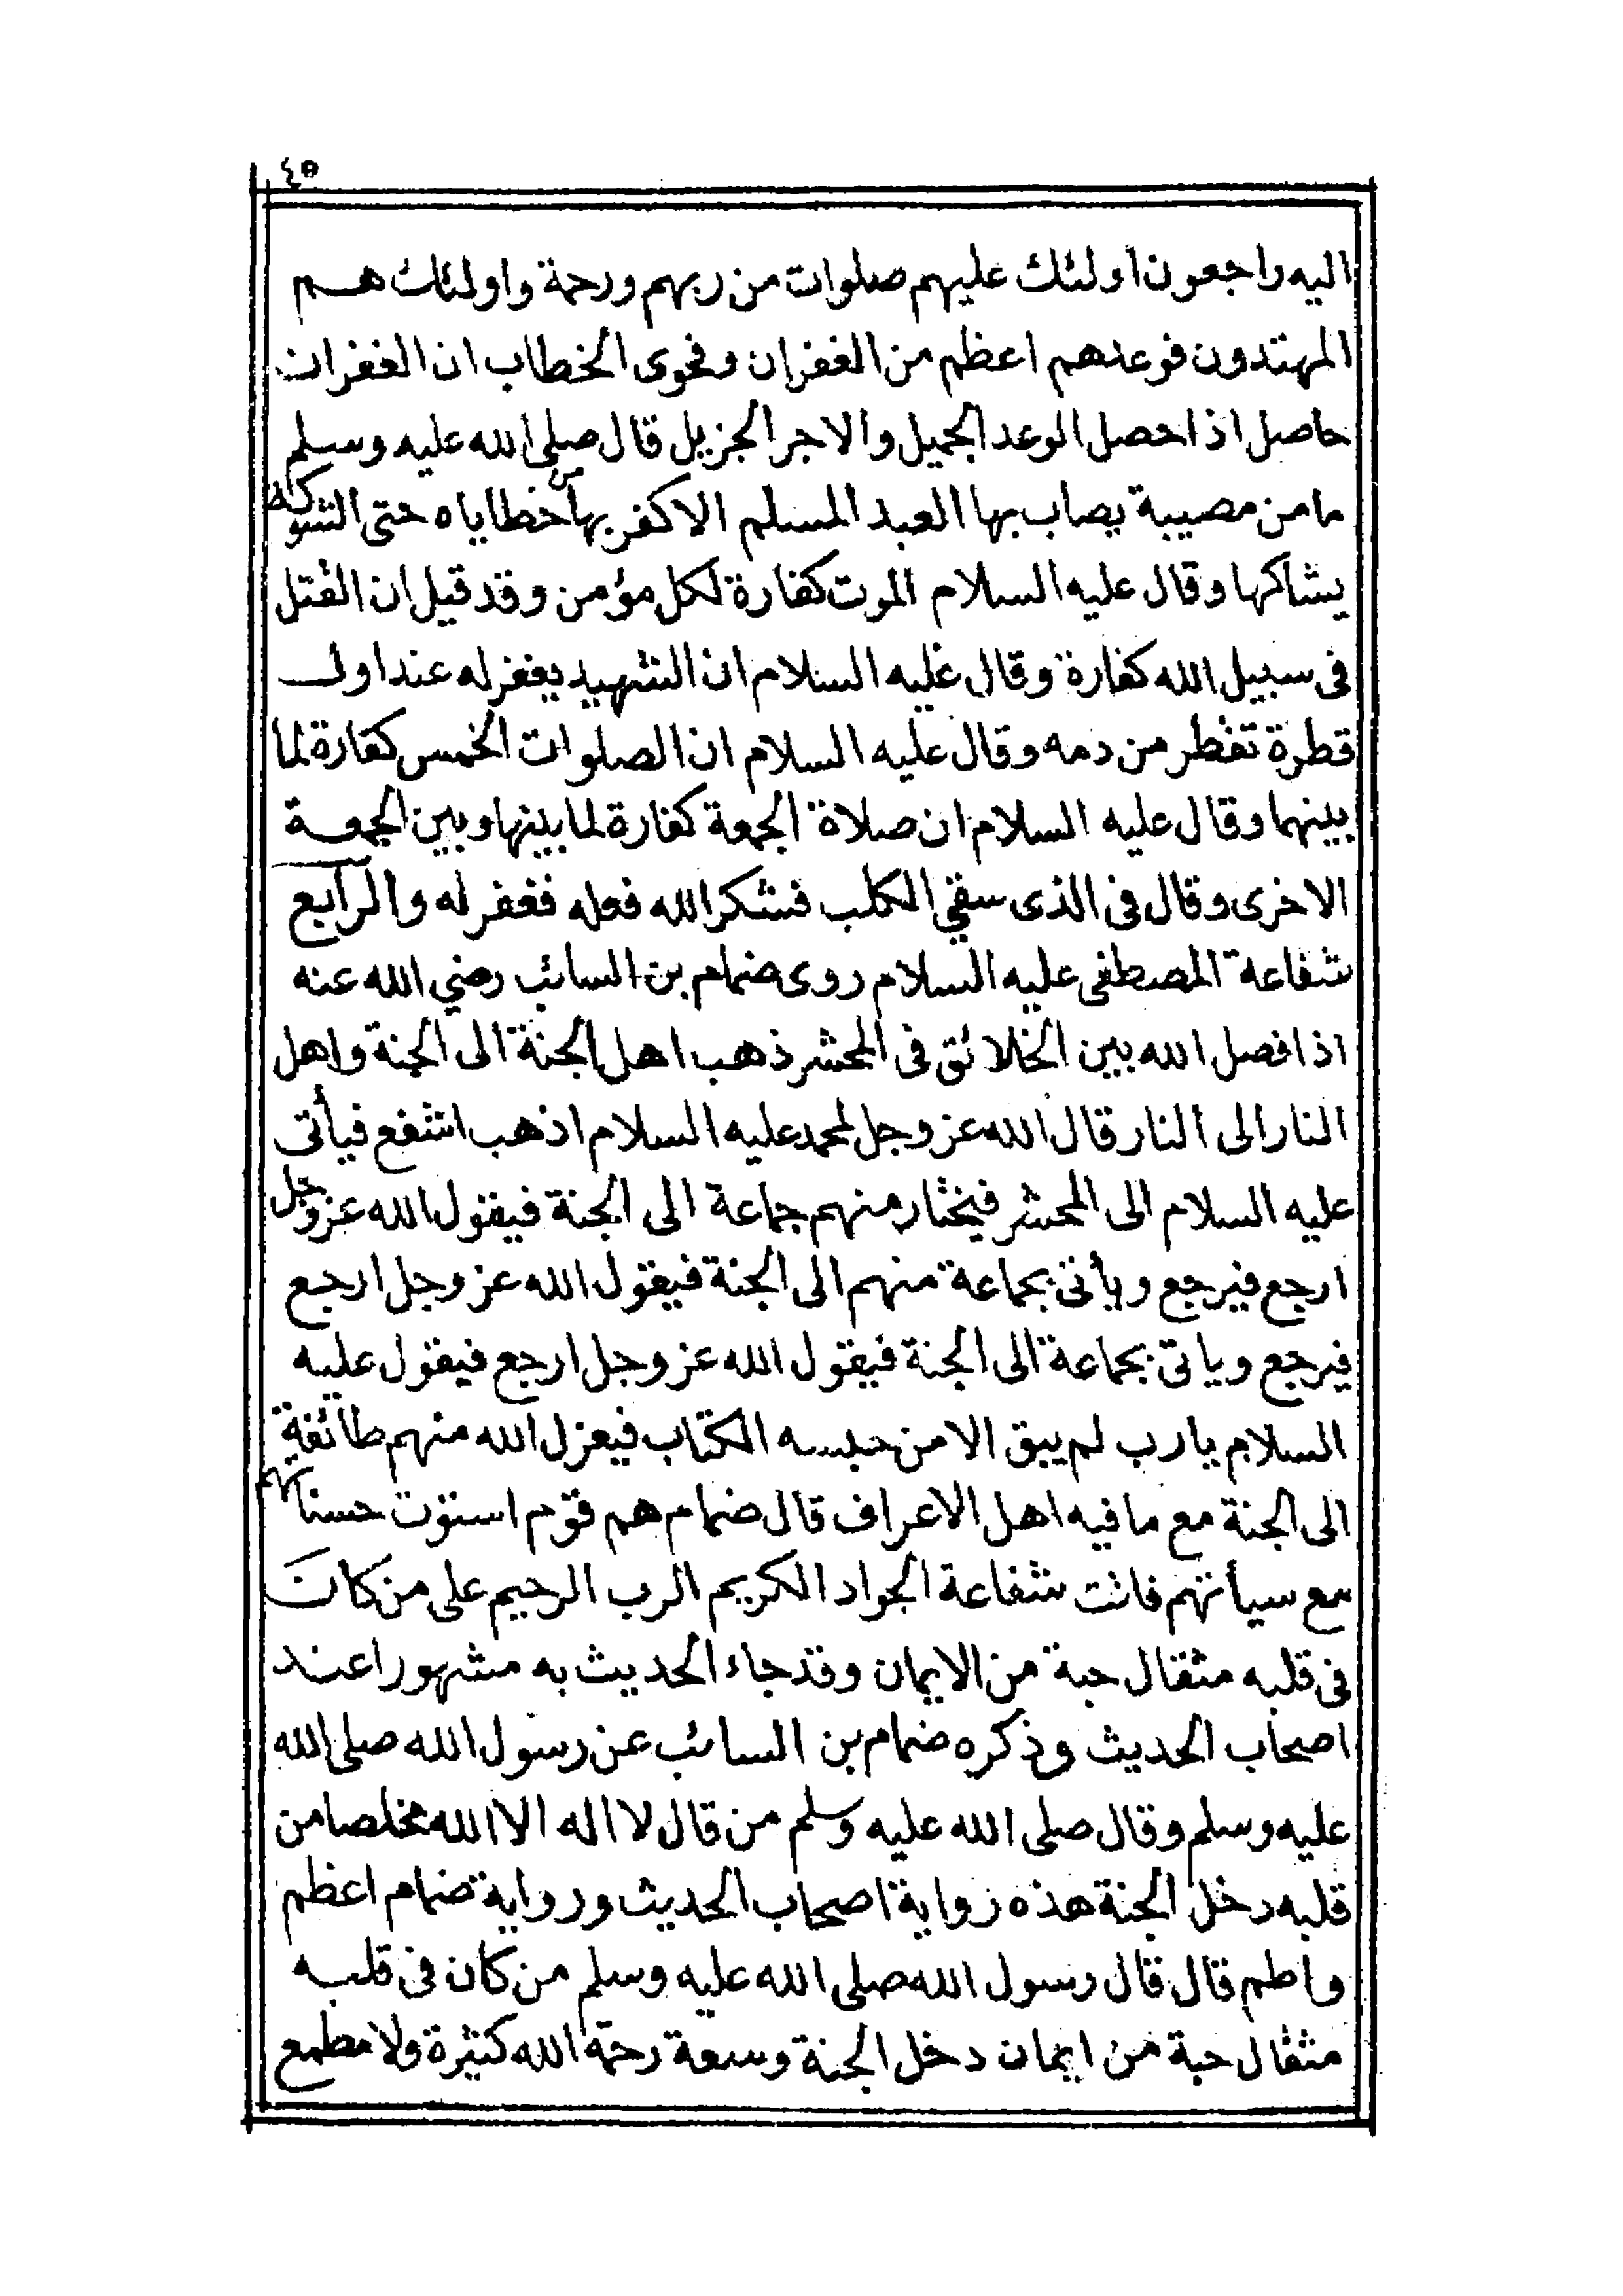 ٤٥
اليه راجعون اولئك عليهم صلوات من ربهم ورحمة واولئك هم
المهتدون فوعدهم اعظم من الغفران وفحوى الخطاب ان الغفران
حاصل اذا حصل الوعد الجميل والاجر الجزيل قال صلى الله عليه وسلم
ما من مصيبة يصاب بها العبد المسلم الا كفر بها من خطاياه حتى الشوكة
يشاكها وقال عليه السلام الموت كفارة لكل مؤمن وقد قيل ان القتل
فى سبيل الله كفارة وقال عليه السلام ان الشهيد يغفر له عند اول
قطرة تقطر من دمه وقال عليه السلام ان الصلوات الخمس كفارة لما
بينهما وقال عليه السلام ان صلاة الجمعة كفارة لما بينها وبين الجمعة
الاخرى وقال فى الذى سقي الكلب فشكر الله فعله فغفر له والرابع
شفاعة المصطفى عليه السلام روى ضمام بن السائب رضي الله عنه
اذا فصل الله بين الخلائق فى المحشر ذهب اهل الجنة الى الجنة واهل
النار الى النار قال الله عز وجل لمحمد عليه السلام اذهب اشفع فيأتى
عليه السلام الى المحشر فيختار منهم جماعة الى الجنة فيقول الله عز وجل
ارجع فيرجع ويأتى بجماعة منهم الى الجنة فيقول الله عز وجل ارجع
فيرجع وياتى بجماعة الى الجنة فيقول الله عز وجل ارجع فيقول عليه
السلام يا رب لم يبق الا من حبسه الكتاب فيعزل الله منهم طائفة
الى الجنة مع ما فيه اهل الاعراف قال ضمام هم قوم استوت حسناتهم
مع سيأتهم فاتت شفاعة الجواد الكريم الرب الرحيم على من كان
فى قلبه مثقال حبة من الايمان وقد جاء الحديث به مشهورا عند
اصحاب الحديث وذكره ضمام بن السائب عن رسول الله صلى الله
عليه وسلم وقال صلى الله عليه وسلم من قال لا اله الا الله مخلصا من
قلبه دخل الجنة هذه رواية اصحاب الحديث ورواية ضمام اعظم
واطم قال قال رسول الله صلى الله عليه وسلم من كان فى قلبه
مثقال حبة من ايمان دخل الجنة وسعة رحمة الله كثيرة ولا مطمع